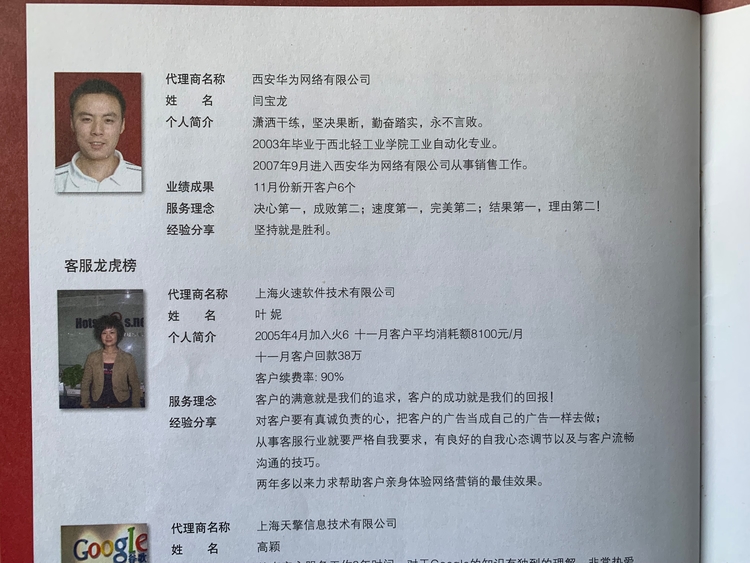 代理商名称 西安华为网络有限公司
姓 名 闫宝龙
个人简介 潇洒干练，坚决果断，勤奋踏实，永不言败。
2003年毕业于西北轻工业学院工业自动化专业。
2007年9月进入西安华为网络有限公司从事销售工作。
业绩成果 11月份新开客户6个
服务理念 决心第一，成败第二；速度第一，完美第二；结果第一，理由第二！
经验分享 坚持就是胜利。
客服龙虎榜
代理商名称 上海火速软件技术有限公司
姓 名 叶 妮
个人简介 2005年4月加入火6 十一月客户平均消耗额8100元/月
十一月客户回款38万
客户续费率: 90%
服务理念 客户的满意就是我们的追求，客户的成功就是我们的回报！
经验分享 对客户要有真诚负责的心，把客户的广告当成自己的广告一样去做；
从事客服行业就要严格自我要求，有良好的自我心态调节以及与客户流畅
沟通的技巧。
两年多以来力求帮助客户亲身体验网络营销的最佳效果。
Google
代理商名称 上海天擎信息技术有限公司
姓 名 高颖